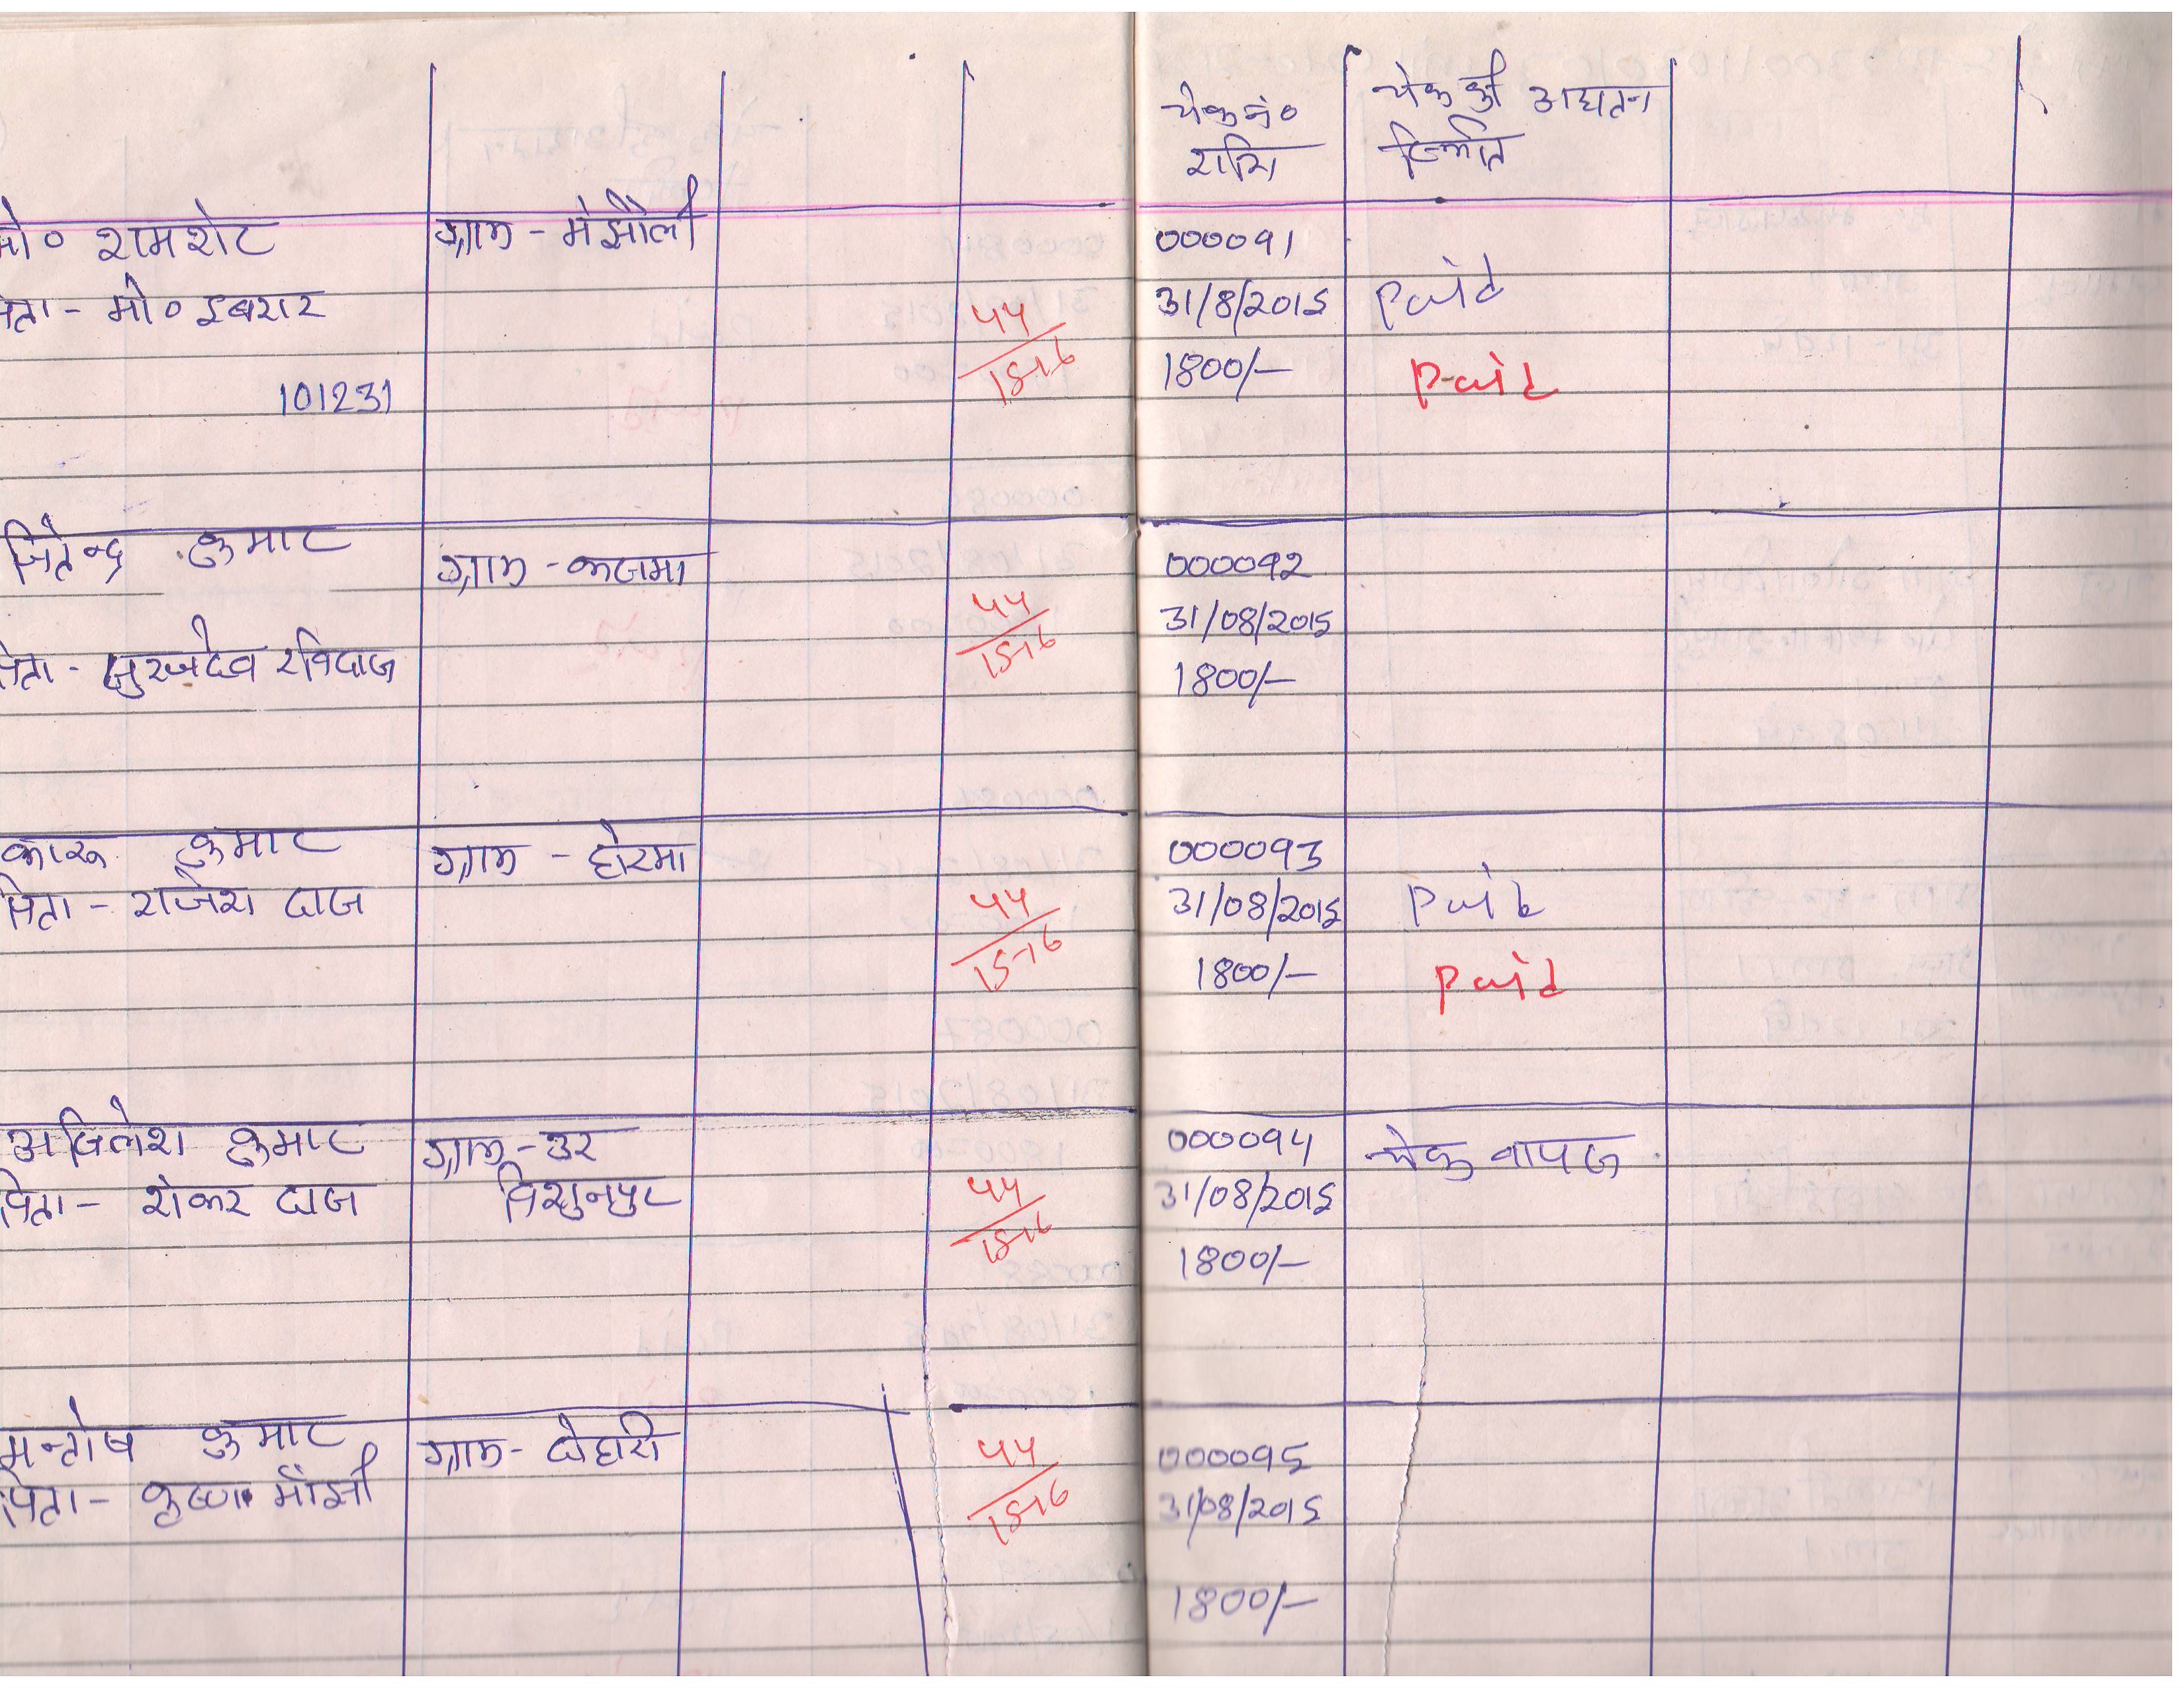 चेक नं०
राशि
चेक की अद्यतन
स्थिति
मो० शमशेर
पिता - मो० इबरार
101231
ग्राम - मंझौली
44
15-16
000091
31/8/2015
1800/-
paid
paid
जितेन्द्र कुमार
पिता - सुरजदेव रविदास
ग्राम - कजमा
44
15-16
000092
31/08/2015
1800/-
कारू कुमार
पिता - राजेश दास
ग्राम - होरमा
44
15-16
000093
31/08/2015
1800/-
paid
paid
अखिलेश कुमार
पिता - शंकर दास
ग्राम - उर
विशुनपुर
44
15-16
000094
31/08/2015
1800/-
चेक वापस
सन्तोष कुमार
पिता - कृष्णा माँझी
ग्राम - दोहारी
44
15-16
000095
31/08/2015
1800/-